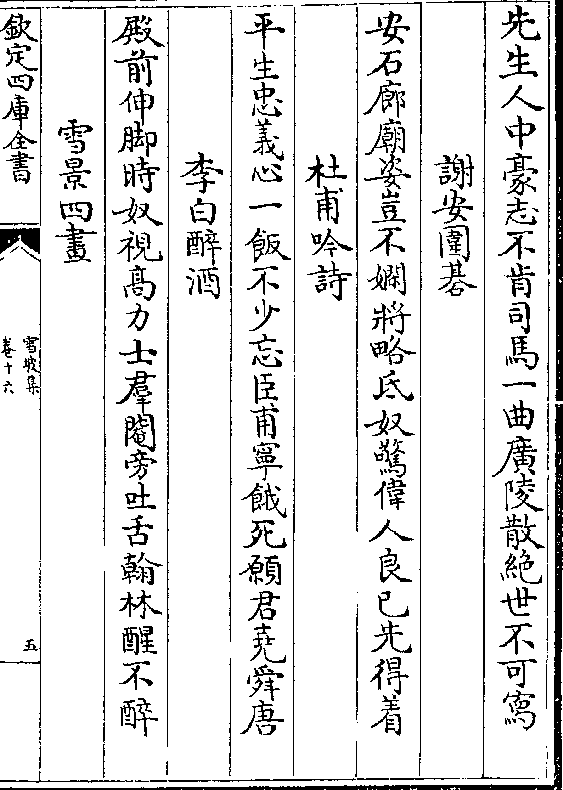 先生人中豪志不肯司馬一曲廣陵散絶世不可寫
謝安圍碁
安石廊廟姿豈不嫻將略氐奴驚偉人良已先得着
杜甫吟詩
平生忠義心一飯不少忘臣甫寧餓死願君堯舜唐
李白醉酒
殿前伸脚時奴視髙力士羣閹旁吐舌翰林醒不醉
雪景四畫
欽定四庫全書
雪坡集
卷十六
五